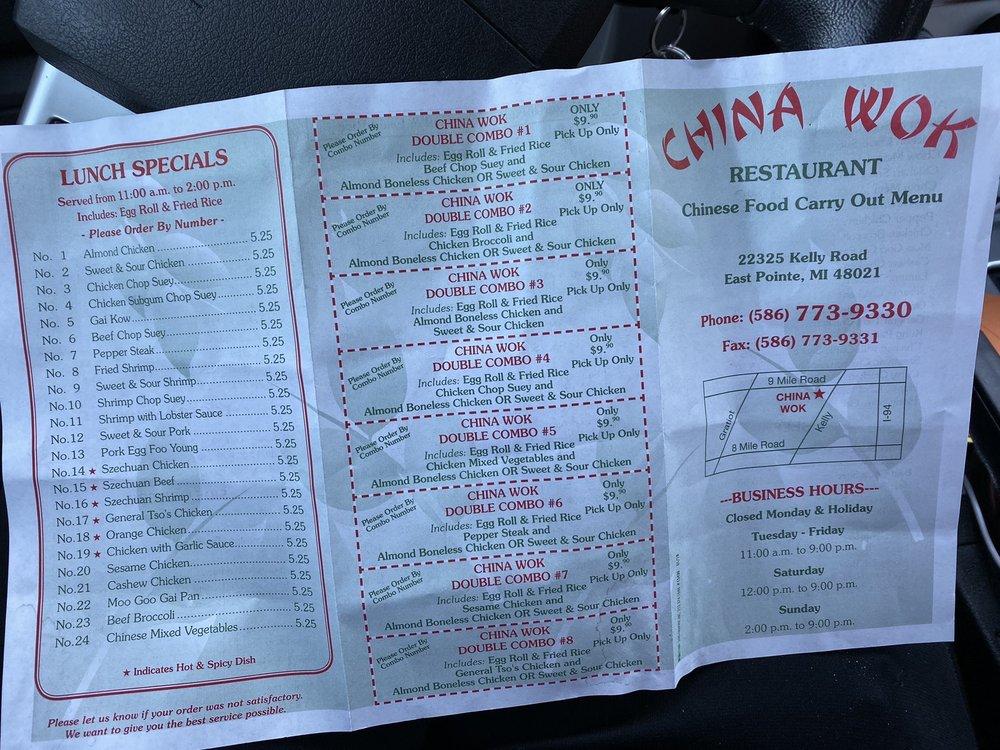 LUNCH SPECIALS
Served from 11:00 a.m. to 2:00 p.m.
Includes: Egg Roll & Fried Rice
- Please Order By Number -
No. 1 Almond Chicken 5.25
No. 2 Sweet & Sour Chicken 5.25
No. 3 Chicken Chop Suey 5.25
No. 4 Chicken Subgum Chop Suey 5.25
No. 5 Gai Kow 5.25
No. 6 Beef Chop Suey 5.25
No. 7 Pepper Steak 5.25
No. 8 Fried Shrimp 5.25
No. 9 Sweet & Sour Shrimp 5.25
No.10 Shrimp Chop Suey 5.25
No.11 Shrimp with Lobster Sauce 5.25
No.12 Sweet & Sour Pork 5.25
No.13 Pork Egg Foo Young 5.25
No.14 ★ Szechuan Chicken 5.25
No.15 ★ Szechuan Beef 5.25
No.16 ★ Szechuan Shrimp 5.25
No.17 ★ General Tso's Chicken 5.25
No.18 ★ Orange Chicken 5.25
No.19 ★ Chicken with Garlic Sauce 5.25
No.20 Sesame Chicken 5.25
No.21 Cashew Chicken 5.25
No.22 Moo Goo Gai Pan 5.25
No.23 Beef Broccoli 5.25
No.24 Chinese Mixed Vegetables 5.25
★ Indicates Hot & Spicy Dish
Please let us know if your order was not satisfactory.
We want to give you the best service possible.
Please Order By
Combo Number
CHINA WOK
DOUBLE COMBO #1
ONLY
$9.90
Pick Up Only
Includes: Egg Roll & Fried Rice
Beef Chop Suey and
Almond Boneless Chicken OR Sweet & Sour Chicken
Please Order By
Combo Number
CHINA WOK
DOUBLE COMBO #2
ONLY
$9.90
Pick Up Only
Includes: Egg Roll & Fried Rice
Chicken Broccoli and
Almond Boneless Chicken OR Sweet & Sour Chicken
Please Order By
Combo Number
CHINA WOK
DOUBLE COMBO #3
Only
$9.90
Pick Up Only
Includes: Egg Roll & Fried Rice
Almond Boneless Chicken and
Sweet & Sour Chicken
Please Order By
Combo Number
CHINA WOK
DOUBLE COMBO #4
Only
$9.90
Pick Up Only
Includes: Egg Roll & Fried Rice
Chicken Chop Suey and
Almond Boneless Chicken OR Sweet & Sour Chicken
Please Order By
Combo Number
CHINA WOK
DOUBLE COMBO #5
Only
$9.90
Pick Up Only
Includes: Egg Roll & Fried Rice
Chicken Mixed Vegetables and
Almond Boneless Chicken OR Sweet & Sour Chicken
Please Order By
Combo Number
CHINA WOK
DOUBLE COMBO #6
Only
$9.90
Pick Up Only
Includes: Egg Roll & Fried Rice
Pepper Steak and
Almond Boneless Chicken OR Sweet & Sour Chicken
Please Order By
Combo Number
CHINA WOK
DOUBLE COMBO #7
Only
$9.90
Pick Up Only
Includes: Egg Roll & Fried Rice
Sesame Chicken and
Almond Boneless Chicken OR Sweet & Sour Chicken
Please Order By
Combo Number
CHINA WOK
DOUBLE COMBO #8
Only
$9.90
Pick Up Only
Includes: Egg Roll & Fried Rice
General Tso's Chicken and
Almond Boneless Chicken OR Sweet & Sour Chicken
CHINA WOK
RESTAURANT
Chinese Food Carry Out Menu
22325 Kelly Road
East Pointe, MI 48021
Phone: (586) 773-9330
Fax: (586) 773-9331
9 Mile Road
CHINA ★
WOK
Gratiot
Kelly
I-94
8 Mile Road
---BUSINESS HOURS---
Closed Monday & Holiday
Tuesday - Friday
11:00 a.m. to 9:00 p.m.
Saturday
12:00 p.m. to 9:00 p.m.
Sunday
2:00 p.m. to 9:00 p.m.